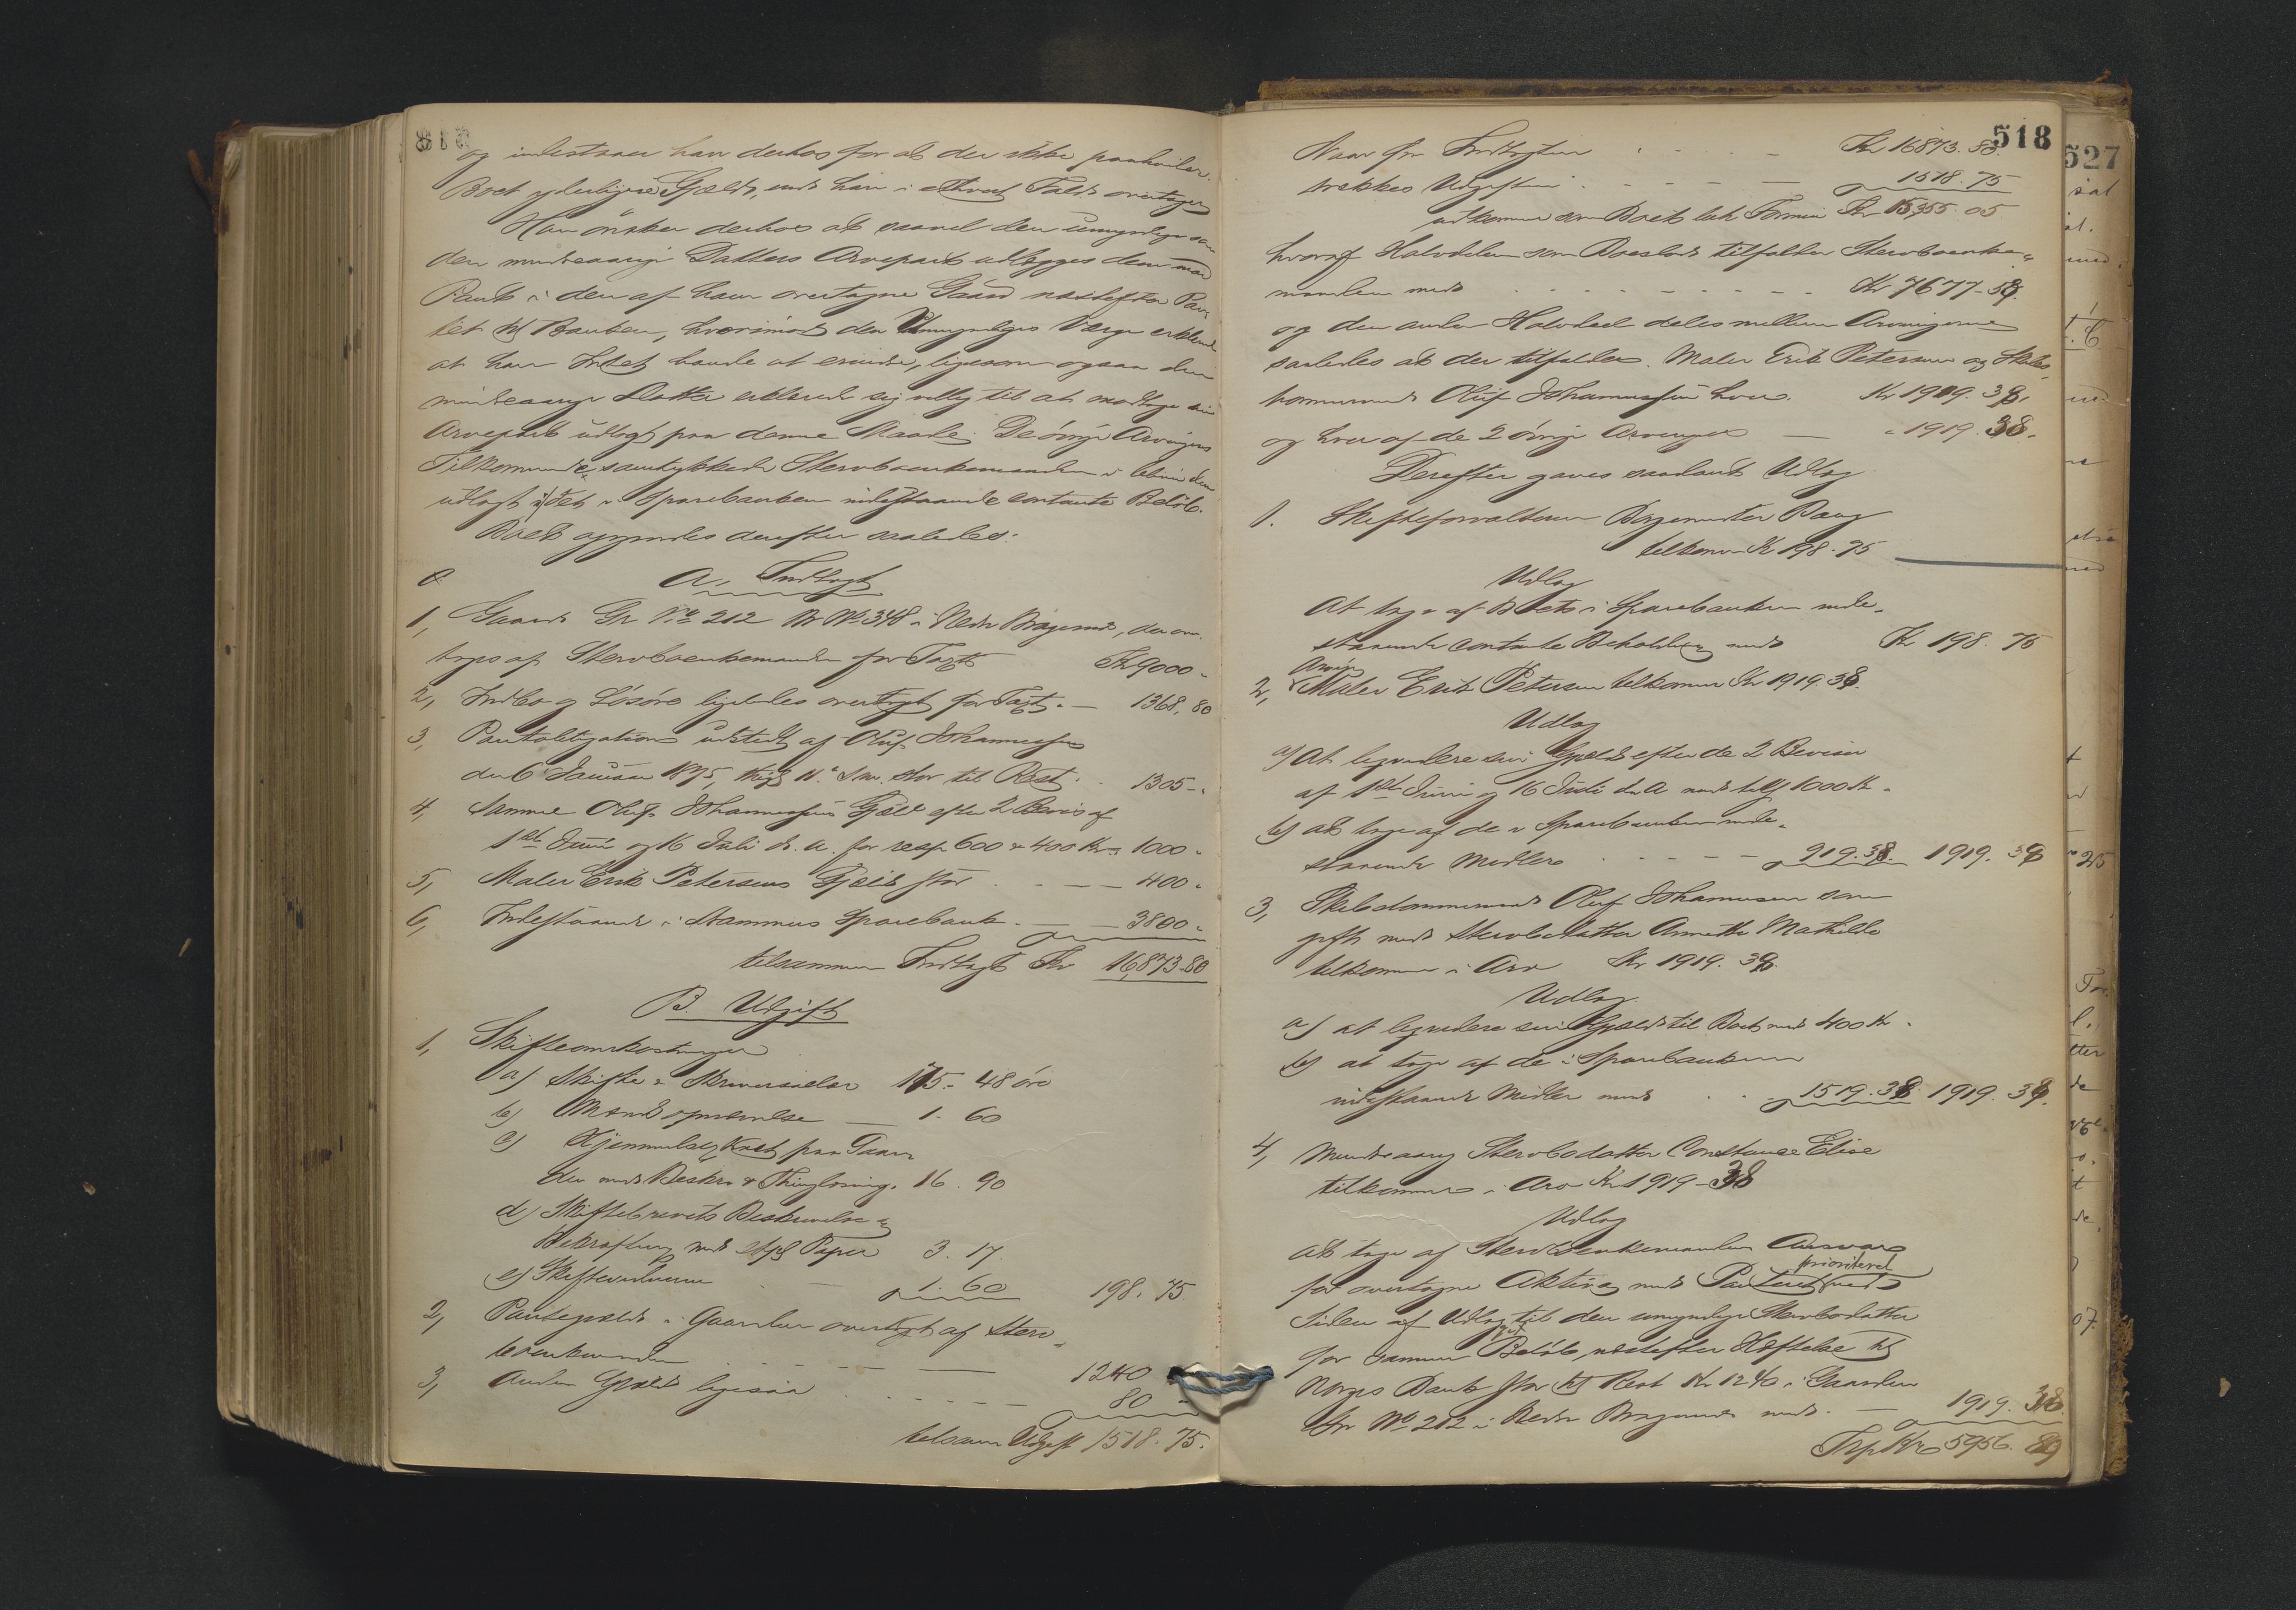 og indestaaer han derhos for at der ikke paahviler
Boet yderligere Gjæld, end han i ethvert Fald overtager
Han ønsker derhos at saavel den umyndige som
den mindreaarige Datters Arvepart udlægges dem mod
Pant i den af ham overtagne Gaard næstefter Pan
tet til Banken, hvorimod den Umyndiges Værge erklærede
at han Intet havde at erindre, ligesom ogsaa den
mindreaarige Datter erklærede sig villig til at modtage sin
Arvepart udlagt paa denne Maade. De øvrige Arvingers
Tilkommende samtykkede Stervboenkemanden i blive dem
udlagt i det i Sparebanken indestaaende contante Beløb.
Boet opgjordes derefter saaledes:
A. Indtægt
1, Gaard Gr No 212 Br No 348 i Nedre Bragernes, der over
tages af Stervboenkemanden for Taxt Kr 9000 "
2, Indbo og Løsøre ligeledes overtaget for Taxt. — 1368, 80
3, Pantobligation udstedt af Oluf Johannessen
den 6 Januar 1875, thingl. 11. s. m. stor til Rest . . 1305 - "
4, Samme Oluf Johannessens Gjæld efter 2 Bevis af
1ste Juni og 16 Juli d. A. for resp. 600 & 400 Kr - 1000 "
5, Maler Erik Petersens Gjæld stor . — — 400 "
6, Indestaaende i Drammens Sparebank . — — 3800 "
tilsammen Indtægt Kr 16,873-80
B. Udgift
1, Skifteomkostninger
a) Skifte & Skriversalær 175 - 48 øre
b) Mænds opnævnelse — 1. 60
c) Hjemmelsbrev paa Gaar
den med Beskrv & Thinglæsning. 16. 90
d) Skiftebrevets Beskrivelse &
Bekræftning med stpl Papir 3. 17.
e) Skiftevidnerne — 1. 60 198. 75
2, Pantegjæld i Gaarden overtaget af Sterv
boenkemanden . . — — — 1240
3, Anden Gjæld ligesaa . . . — — — 80 -
tilsam Udgift 1518. 75.
518
Naar fra Indtægten . . . — Kr 16873. 80.
trækkes Udgiften . . — — — — 1518. 75
udkommer som Boets lut Formue Kr 15355. 05
hvoraf Halvdelen som Boeslod tilfalder Stervboenke-
manden med . . . — — — — Kr 7677-53.
og den anden Halvdeel deles mellem Arvingerne
saaledes at der tilfalder Maler Erik Petersen og Skibs-
tømmermand Oluf Johannessen hver. Kr 1919. 38,
og hver af de 2 øvrige Arvinger — " 1919. 38.
Derefter gaves saadant Udlæg
1. Skifteforvalteren Borgermester
tilkommer Kr 198. 75
Udlæg
At tage af Boets i Sparebanken inde-
staaende contante Beholdning med Kr 198. 75
2, Arving Maler Erik Petersen tilkommer Kr 1919. 38.
Udlæg
a) At liqvidere sin Gjæld efter de 2 Beviser
af 1ste Juni og 16 Juli d. A med tils 1000 Kr.
b) at tage af de i Sparebanken inde-
staaende Midler . . . — — — 919. 38. 1919. 38
3, Skibstømmermand Oluf Johannessen som
gift med Stervbodatter Annette Mathilde
tilkommer i Arv Kr 1919. 38.
Udlæg
a) at liqvidere sin Gjæld til Boet med 400 Kr.
b) at tage af de i Sparebanken
indestaaende Midler med . . . 1519. 38. 1919. 38.
4, Mindreaarig Stervbodatter Constance Elise
tilkommer i Arv Kr 1919-38
Udlæg
At tage af Stervboenkemanden Ansvar
for overtagne Aktiva med Panteret prioriteret ved
Siden af Udlæg til den umyndige Stervbodatter
for samme Beløb, næstefter Heftelse til
Norges Bank stor til Rest Kr 1240 i Gaarden
Gr No 212 i Nedre Bragernes med . — 1919. 38.
Trsp Kr 5956. 89
527